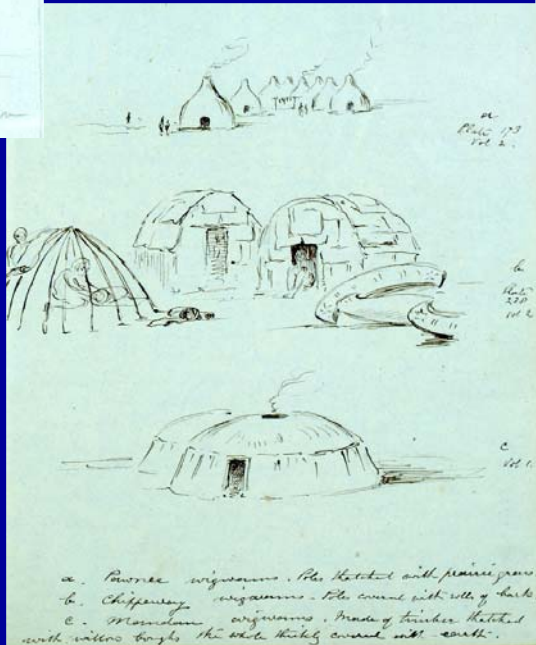 a
Plate 173
Vol 2.
b
Plate
Vol 2
c
Vol 1.
a. Pawnee wigwams. Poles thatched with prairie grass
b. Chippeway wigwams. Poles covered with rolls of bark
c. Mandan wigwams. Made of timber thatched
with willow boughs the whole thickly covered with earth.